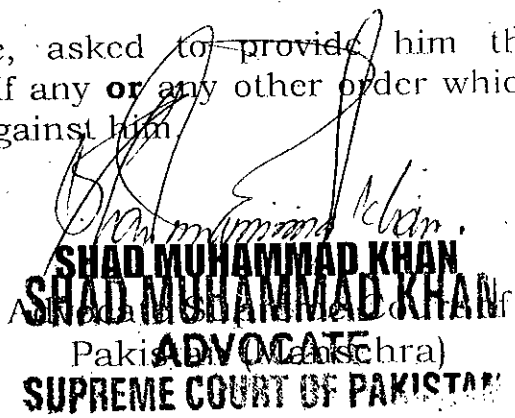 e, asked to provide him th
if any or any other order whic
gainst him.
Shad Muhammad Khan.
SHAD MUHAMMAD KHAN
SHAD MUHAMMAD KHAN
Advocate Supreme Court of
ADVOCATE
Pakistan (Mansehra)
SUPREME COURT OF PAKISTAN